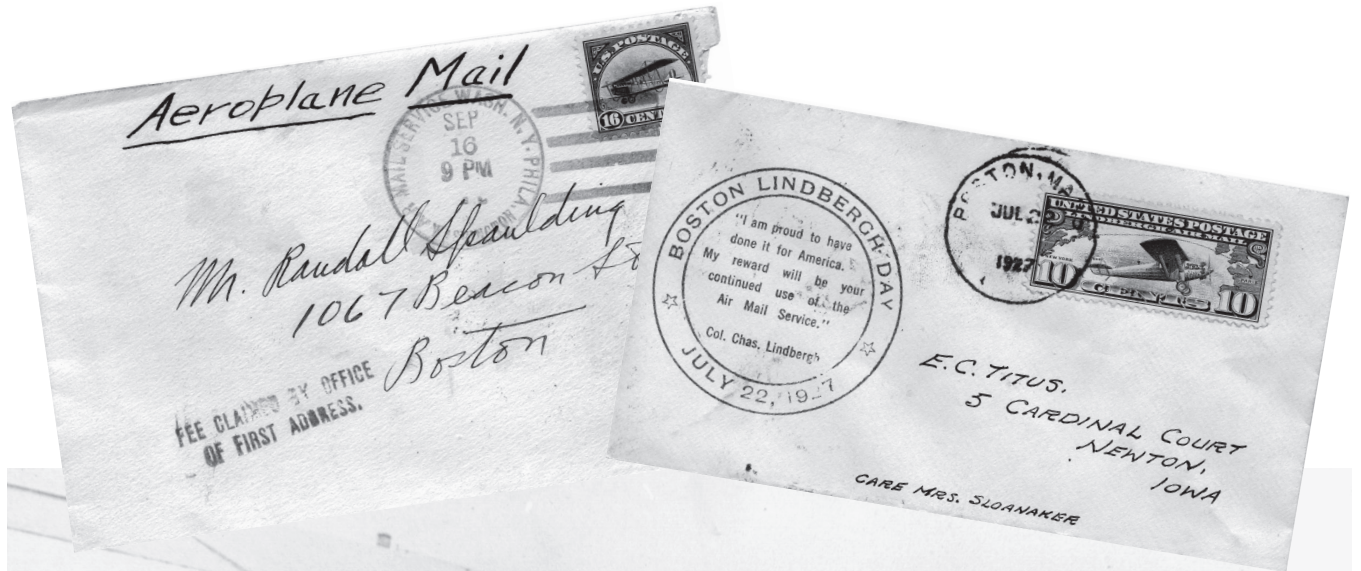 Aeroplane Mail
U.S. POSTAGE
16 CENT
AIR MAIL SERVICE WASH. N.Y. PHILA.
SEP
16
9 PM
Mr. Randall Spaulding
1067 Beacon St
Boston
FEE CLAIMED BY OFFICE
OF FIRST ADDRESS.
BOSTON LINDBERGH DAY
"I am proud to have
done it for America.
My reward will be your
continued use of the
Air Mail Service."
Col. Chas. Lindbergh
JULY 22, 1927
BOSTON, MA
JUL 2
1927
UNITED STATES POSTAGE
LINDBERGH AIR MAIL
NEW YORK
10 10
E.C. TITUS.
5 CARDINAL COURT
NEWTON,
IOWA
CARE MRS. SLOANAKER